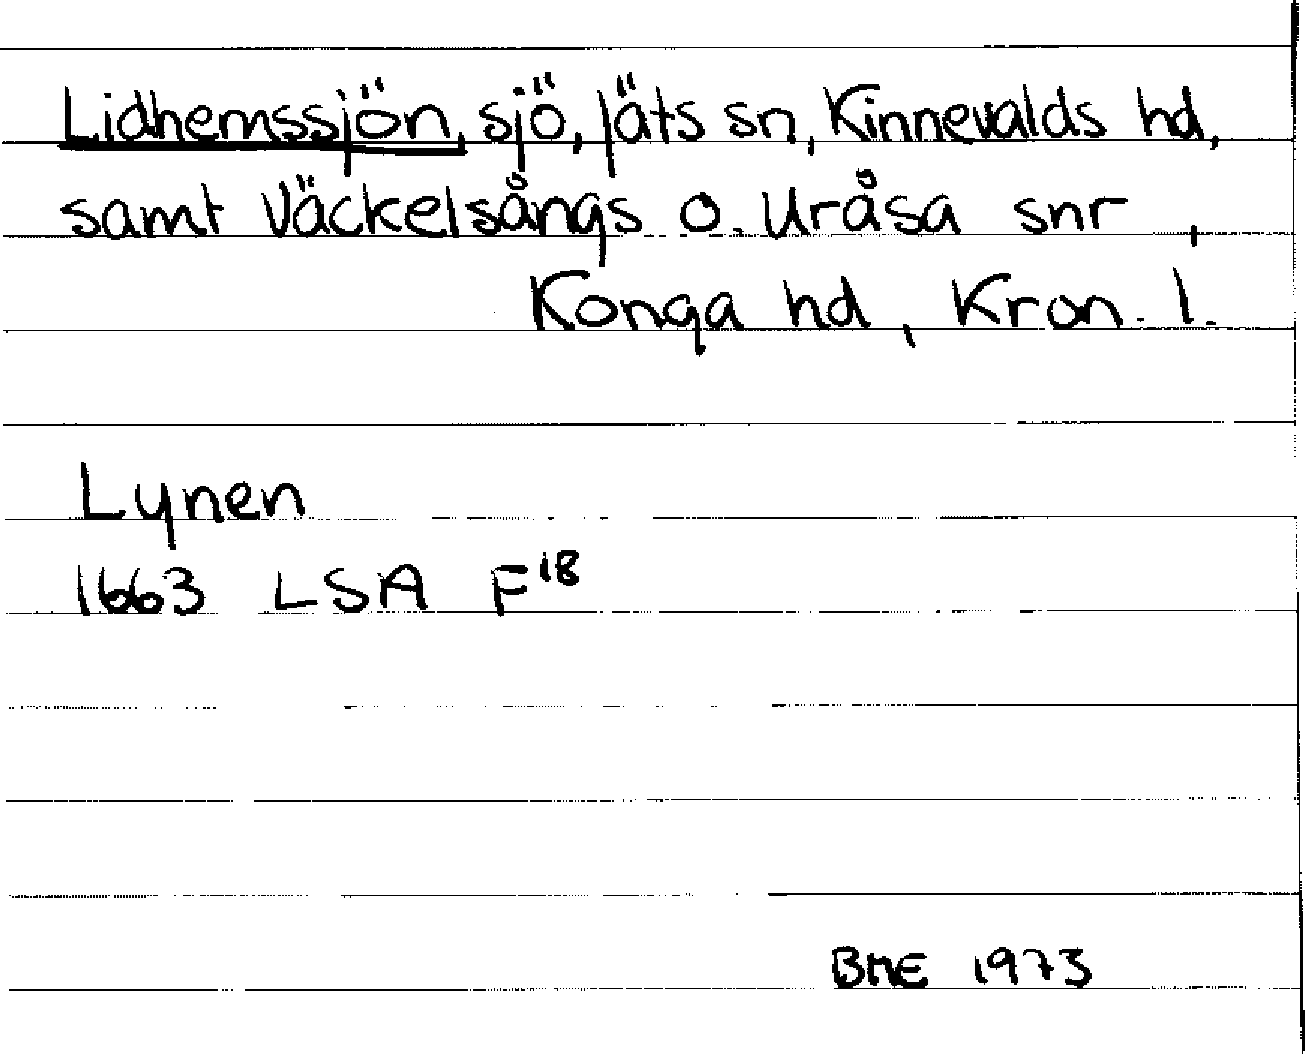 Lidhemssjön, sjö, Jäts sn, Kinnevalds hd,
samt Väckelsångs o. Uråsa snr,
Konga hd, Kron. l.
Lynen
1663 LSA F18
BME 1973